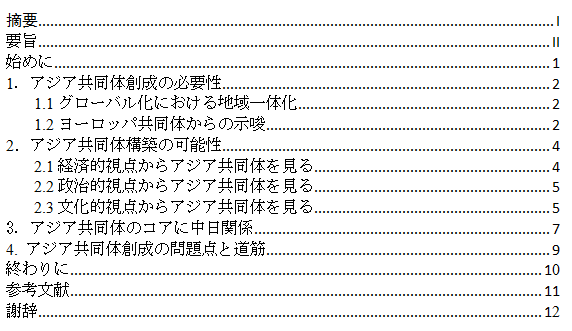 摘要 I
要旨 II
始めに 1
1．アジア共同体創成の必要性 2
1.1 グローバル化における地域一体化 2
1.2 ヨーロッパ共同体からの示唆 2
2．アジア共同体構築の可能性 4
2.1 経済的視点からアジア共同体を見る 4
2.2 政治的視点からアジア共同体を見る 5
2.3 文化的視点からアジア共同体を見る 5
3．アジア共同体のコアに中日関係 7
4. アジア共同体創成の問題点と道筋 9
終わりに 10
参考文献 11
謝辞 12